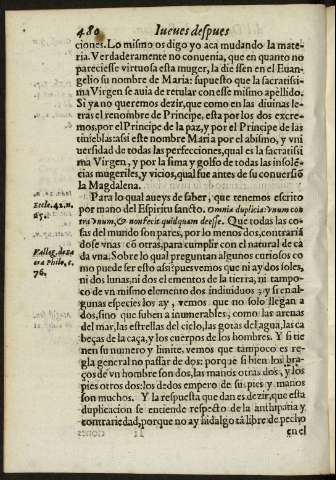 480 Iueves despues
ciones. Lo mismo os digo yo aca mudando la mate-
ria. Verdaderamente no conuenia, que en quanto no
pareciesse virtuosa esta muger, la diessen en el Euan-
gelio su nombre de Maria: supuesto que la sacratissi-
ma Virgen se auia de retular con esse mismo apellido.
Si ya no queremos dezir, que como en las diuinas le-
tras el renombre de Principe, esta por los dos extre-
mos, por el Principe de la paz, y por el Principe de las
tinieblas: assi este nombre Maria por el abismo, y vni
uersidad de todas las perfecciones, qual es la sacratissi
ma Virgen, y por la sima y golfo de todas las insolē-
cias mugeriles, y vicios, qual fue antes de su conuersiō
la Magdalena.
Para lo qual aueys de saber, que tenemos escrito
Eccle. 42. n.
por mano del Espiritu sancto, Omnia duplicia: vnum con
25.
tra vnum, & non fecit quidquam deesse. Que todas las co-
sas del mundo son pares, por lo menos dos, contrariā
dose vnas cō otras, para cumplir con el natural de ca
da vna. Sobre lo qual preguntan algunos curiosos co
Philo,
mo puede ser esto assi: pues vemos que ni ay dos soles,
76.
ni dos lunas, ni dos elementos de la tierra, ni tampo-
co de vn mismo elemento dos indiuiduos: y si en al-
gunas especies los ay, vemos que no solo llegan a
dos, sino que suben a inumerables, como las arenas
del mar, las estrellas del cielo, las gotas del agua, las ca
beças de la caça, y los cuerpos de los hombres. Y si tie
nen su numero y limite, vemos que tampoco es re-
gla general no passar de dos: porque si bien los bra-
ços de vn hombre son dos, las manos otras dos, y los
pies otros dos: los dedos empero de sus pies y manos
son muchos. Y la respuesta que dan es dezir, que esta
duplicacion se entiende respecto de la antiparia y
contrariedad, porque no ay hidalgo tā libre de pecho
en el